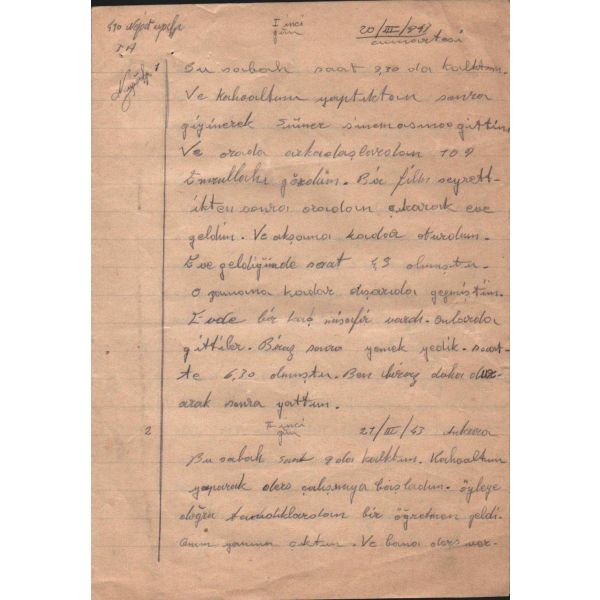 I inci
gün
20/III/943
cumartesi
1
Bu sabah saat 9,30 da kalktım.
Ve kahvaltımı yaptıktan sonra
giyinerek Sümer sinemasına gittim,
Ve orada arkadaşlardan 109
Emrullahı gördüm. Bir film seyrett-
ikten sonra oradan çıkarak eve
geldim. Ve akşama kadar oturdum.
Eve geldiğimde saat olmuştu.
O zamana kadar dışarıda geçmiştim.
Evde bir kaç misafir vardı. onlarda
gittiler. Biraz sonra yemek yedik. saat-
te 6,30 olmuştu. Ben biraz daha dur-
arak sonra yattım.
2
II inci
gün
21/III/43 Ankara
Bu sabah saat 9 da kalktım. Kahvaltımı
yaparak ders çalışmaya başladım. öyleye
doğru tanıdıklardan bir öğretmen geldi-
onun yanına çıktım. Ve bana ders